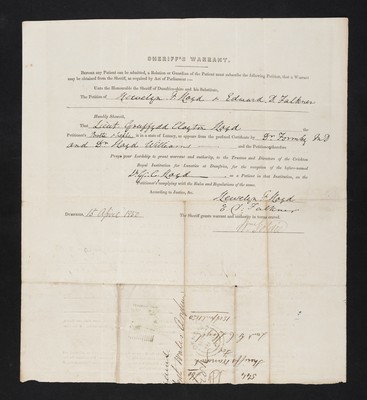 SHERIFF'S WARRANT.
Before any Patient can be admitted, a Relation or Guardian of the Patient must subscribe the following Petition, that a Warrant
may be obtained from the Sheriff, as required by Act of Parliament:—
Unto the Honourable the Sheriff of Dumfries-shire and his Substitute,
The Petition of Llewelyn F Lloyd & Edward D. Falkner
Humbly Sheweth,
That Lieut Gruffydd Clayton Lloyd the
Petitioner's is in a state of Lunacy, as appears from the prefixed Certificate by Dr Formby MD
and Dr Lloyd Williams and the Petitioner therefore
Prays your Lordship to grant warrant and authority, to the Trustees and Directors of the Crichton
Royal Institution for Lunatics at Dumfries, for the reception of the before-named
Lloyd as a Patient in that Institution, on the
Petitioner's complying with the Rules and Regulations of the same.
According to Justice, &c.
Llewelyn F Lloyd
E. D. Falkner
Dumfries, 15 April 1850 The Sheriff grants warrant and authority in terms craved.
Sheriff's Warrant
for
Lloyd